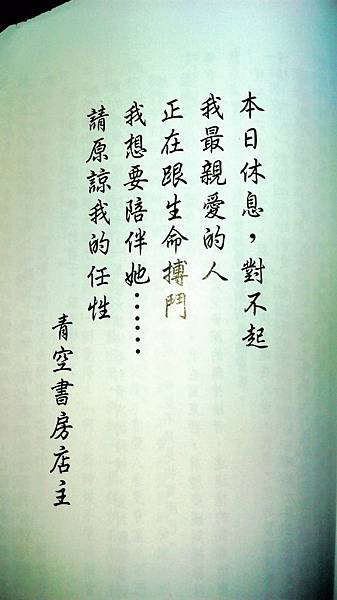 本日休息，對不起
我最親愛的人
正在跟生命搏鬥
我想要陪伴她……
請原諒我的任性
青空書房店主